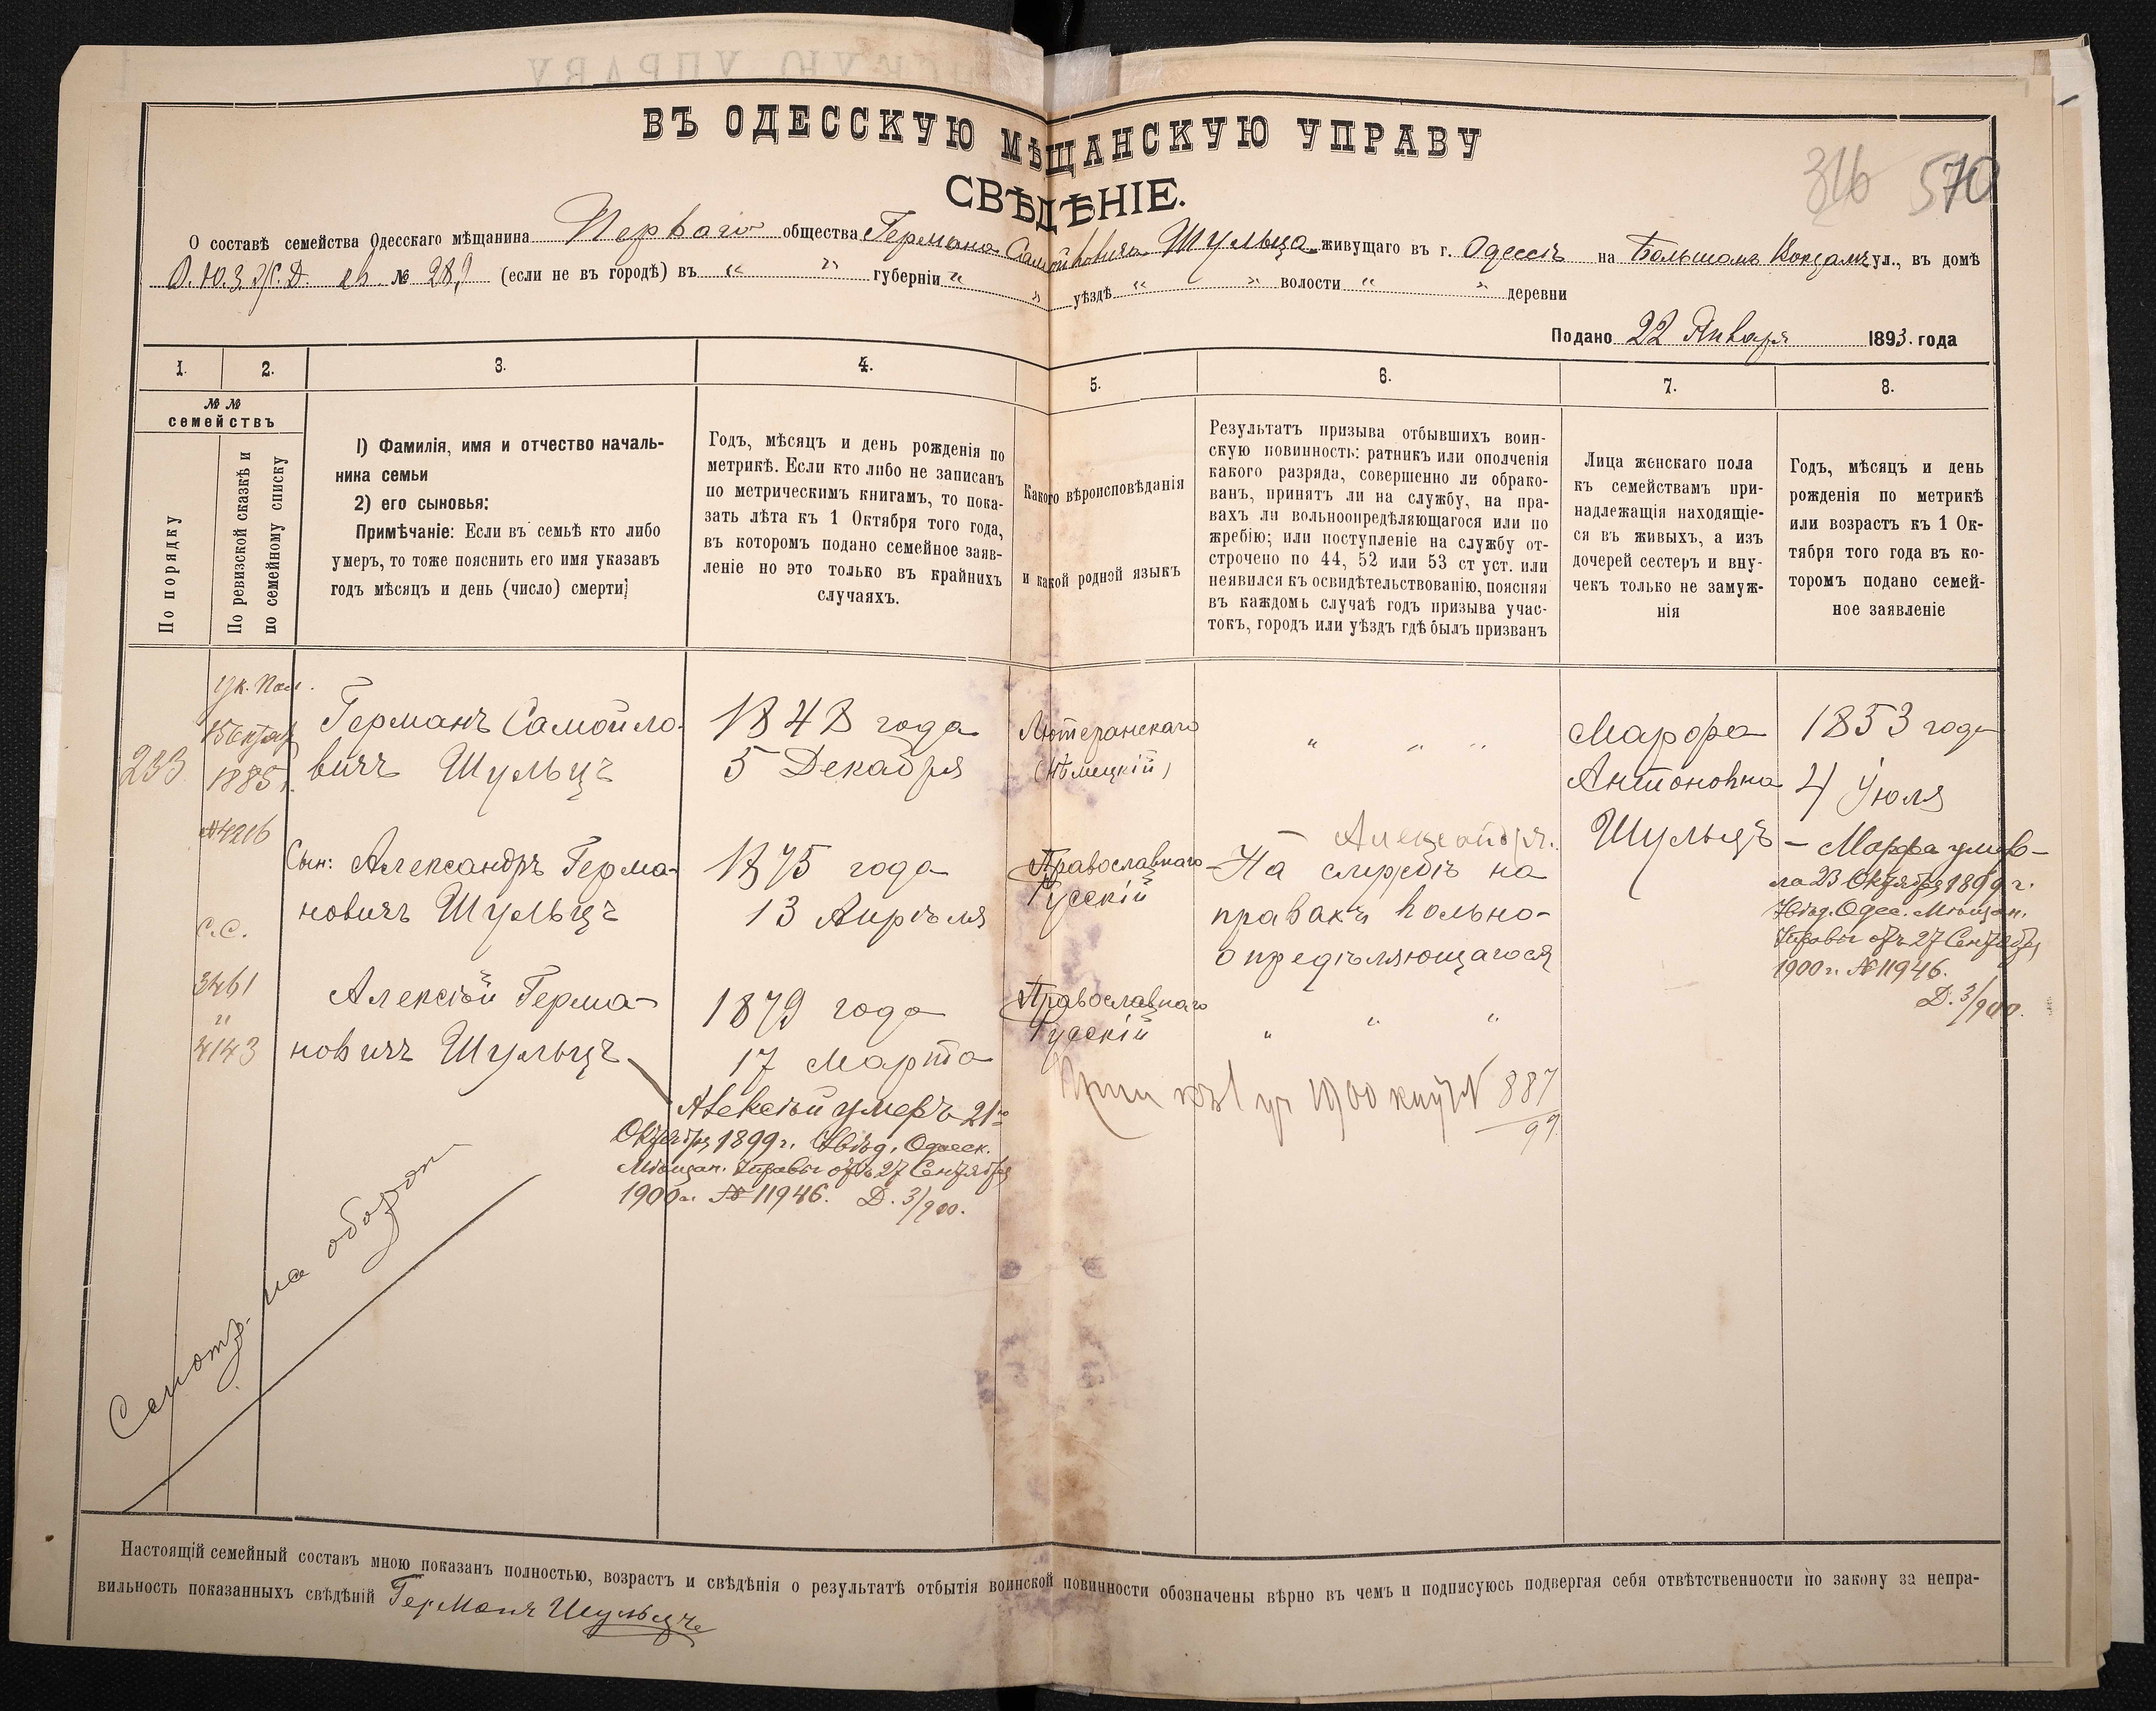 ВЪ ОДЕССКУЮ МѢЩАНСКУЮ УПРАВУ
СВѢДѢНІЕ.
316 570
О составѣ семейства Одесскаго мѣщанина Перваго общества Германа Самойловича Шульца живущаго въ г. Одессѣ на Большомъ Вокзалѣ ул., въ домѣ
О.Ю.З.Ж.Д. № 28, (если не въ городѣ) въ " " губерніи " " уѣздѣ " " волости " " деревни
Подано 22 Января 1893. года
1. 2. 3. 4. 5. 6. 7. 8.
№ №
семействъ
По порядку
По ревизской сказкѣ и
по семейному списку
1) Фамилія, имя и отчество началь-
ника семьи
2) его сыновья:
Примѣчаніе: Если въ семьѣ кто либо
умеръ, то тоже пояснить его имя указавъ
годъ мѣсяцъ и день (число) смерти]
Годъ, мѣсяцъ и день рожденія по
метрикѣ. Если кто либо не записанъ
по метрическимъ книгамъ, то пока-
зать лѣта къ 1 Октября того года,
въ которомъ подано семейное заяв-
леніе но это только въ крайнихъ
случаяхъ.
Какого вѣроисповѣданія
и какой родной языкъ
Результатъ призыва отбывшихъ воин-
скую повинность: ратникъ или ополченія
какого разряда, совершенно ли обрако-
ванъ, принятъ ли на службу, на пра-
вахъ ли вольноопредѣляющагося или по
жребію; или поступленіе на службу от-
строчено по 44, 52 или 53 ст уст. или
неявился къ освидѣтельствованію, поясняя
въ каждомъ случаѣ годъ призыва учас-
токъ, городъ или уѣздъ гдѣ былъ призванъ
Лица женскаго пола
къ семействамъ при-
надлежащія находящіе-
ся въ живыхъ, а изъ
дочерей сестеръ и вну-
чекъ только не замуж-
нія
Годъ, мѣсяцъ и день
рожденія по метрикѣ
или возрастъ къ 1 Ок-
тября того года въ ко-
торомъ подано семей-
ное заявленіе
233
Ук. Пал.
1885 г.
№ 4216
С.С.
3461
и
4143
Германъ Самойло-
вичъ Шульцъ
1848 года
5 Декабря
Лютеранскаго
(нѣмецкій)
" " "
Марфа
Антоновна
Шульцъ
1853 года
4 Іюля
– Марфа умер-
ла 23 Октября 1899 г.
Увѣд. Одес. Мѣщан.
Управы отъ 27 Сентября
1900 г. № 11946.
Д. 3/900.
Сын: Александръ Герма-
новичъ Шульцъ
1875 года
13 Апрѣля
Православнаго
Русскій
Александръ.
– На службѣ на
правахъ вольно-
опредѣляющагося
Алексѣй Герма-
новичъ Шульцъ
1879 года
17 Марта
Православнаго
Русскій
" " "
Алексѣй умеръ 21го
Октября 1899 г. Увѣд. Одесск.
Мѣщан. Управы отъ 27 Сентября
1900 г. № 11946. Д. 3/900.
1900 № 887
99.
Смотр. на оборот
Настоящій семейный составъ мною показанъ полностью, возрастъ и свѣдѣнія о результатѣ отбытія воинской повинности обозначены вѣрно въ чемъ и подписуюсь подвергая себя отвѣтственности по закону за непра-
вильность показанныхъ свѣдѣній Германъ Шульцъ